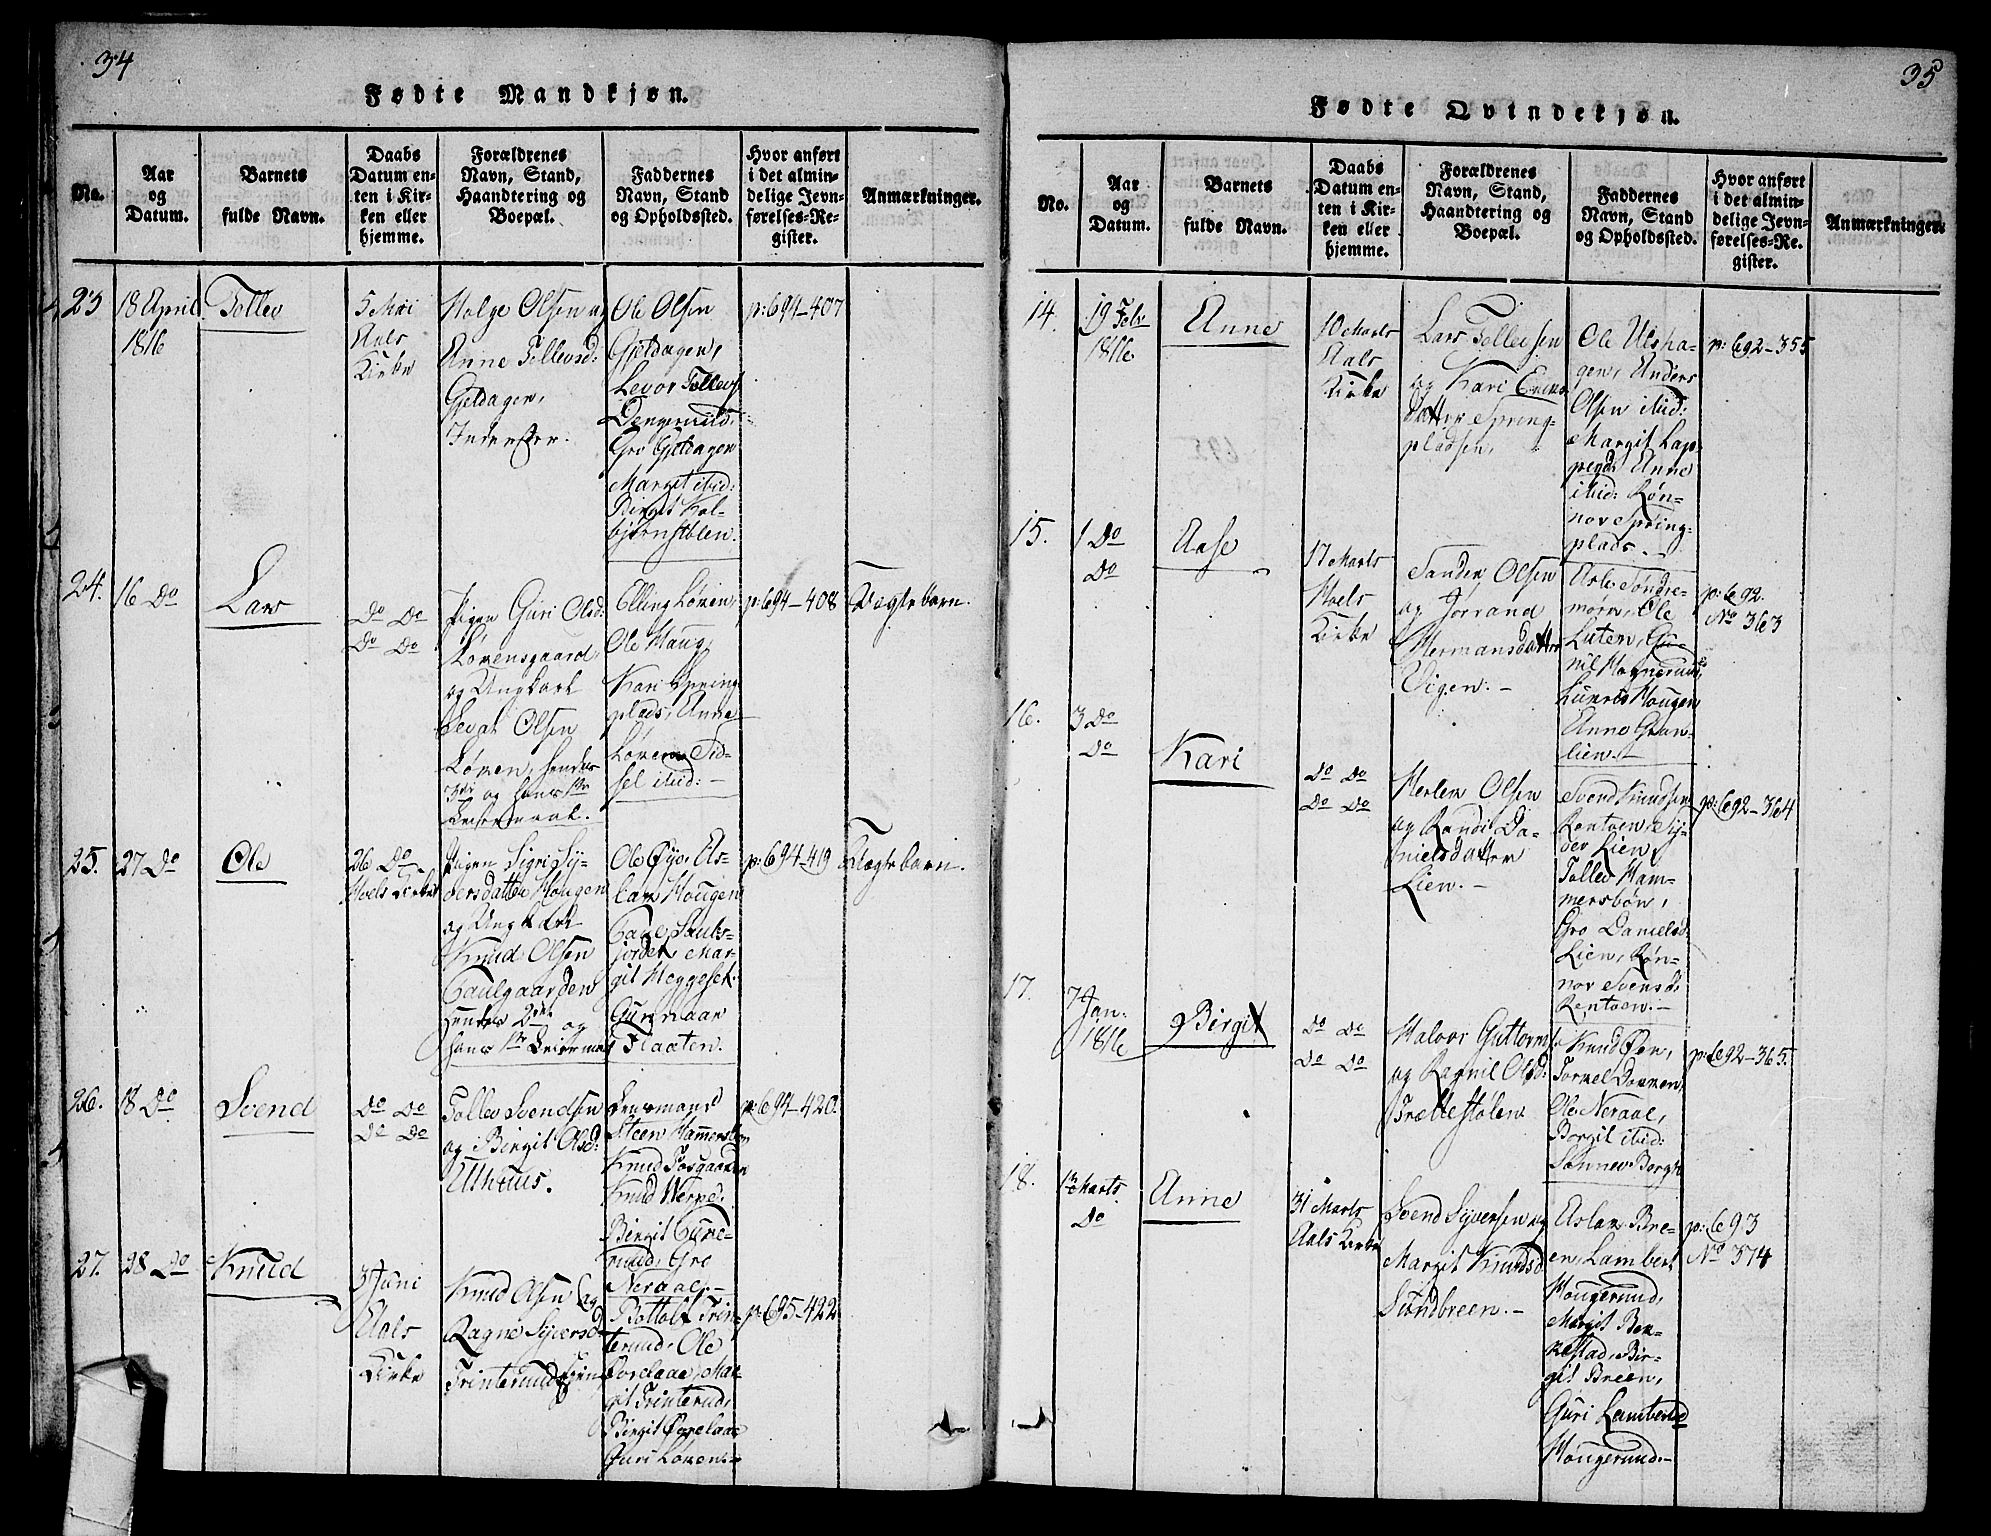 34
Fødte Mandkjøn.
No.
Aar
og
Datum.
Barnets
fulde Navn.
Daabs
Datum en-
ten i Kir-
ken eller
hjemme.
Forældrenes
Navn, Stand,
Haandtering og
Boepæl.
Faddernes
Navn, Stand
og Opholdssted.
Hvor anført
i det almin-
delige Jevn-
førelses-Re-
gister.
Anmærkninger.
23
18 April
1816
Tollev
5 Mai
Aals
Kirke
Holge Olsen og
Anne Tollevsd:
Gjeldagen,
Inderster.
Ole Olsen
Gjeldagen,
Levor Tollevs
Dengerud,
Gro Gjeldagen
Margit ibid:
Birgit Kol-
bjørnstølen.
p: 694-407
24.
16 Do
Lars
Do Do
Do Do
Pigen Guri Olsd:
Løvensgaard,
og Ungkarl
Levat Olsen
Løven, hendes
3die og hans 1te
Leiermaal.
Elling Løven,
Ole Haug,
Kari Spring-
plads, Anne
Løven, Sid-
sel ibid:
p: 694-408
Uægte barn.
25.
27 Do
Ole
26 Do
Hoels Kirke
Pigen Sigri Sy-
versdatter Hougen
og Ungkarl
Knud Olsen
Gaulgaarden
hendes 2den og
hans 1te Leiermaal
Ole Øye, As-
lak Hougen
jordet, Mar-
git Heggeset.
Gunnaar
Flaaten.
p: 694-419
Uægte barn.
26.
18 Do
Svend
Do Do
Do Do
Tollev Svendsen
og Birgit Olsd:
Uthuus.
Lensmand
Steen Hammersbøn
Knud Torsgaarden
Knud Nerpe,
Birgit Gure-
rud, Gro
Neraal.
p: 694-420.
27.
28 Do
Knud
3 Juni
Aals
Kirke
Knud Olsen og
Ragne Syversd
Trinterud
Bottolv Trin-
terud, Ole
Torelaae, Mar-
git Trinterud,
Birgit Torelaae
Guri Løven.
p: 695-422
35
Fødte Qvindekjøn.
No.
Aar
og
Datum.
Barnets
fulde Navn.
Daabs
Datum en-
ten i Kir-
ken eller
hjemme.
Forældrenes
Navn, Stand,
Haandtering og
Boepæl.
Faddernes
Navn, Stand
og Opholdssted.
Hvor anført
i det almin-
delige Jevn-
førelses-Re-
gister.
Anmærkninger.
14.
19 Febr
1816
Anne
10 Marts
Aals
Kirke
Lars Tollevsen
og Kari Eriks
datter Spring-
pladsen,
Ole Ulsha-
gen, Anders
Olsen ibid:
Margit Lap-
pegd. Anne
ibid: Røn-
nov Spring-
plads.
p: 692-355
15.
1 Do
Do
Aase
17 Marts
Hoels
Kirke
Sander Olsen
og Jorrand
Hermansdatter
Vigen.
Asle Søndre-
moen, Ole
Luten, Gu-
nil Hognerud,
Hougen
Anne Gran-
lien.
p: 692.
No 363
16.
3 Do
Do
Kari
Do Do
Do Do
Herlek Olsen
og Randi Da-
nielsdatter
Lien.
Svend Knudsen
Rentoen, Sy-
ver Lien,
Tollev Ham-
mersbøn,
Gro Danielsd.
Lien, Røn-
nov Svensd.
Rentoen.
p: 692-364
17.
7 Jan.
1816
Birgit
Do Do
Do Do
Halvor Guttorms.
og Ragnil Olsd:
Trættestølen
Knud Øen,
Torkel Dokken
Ole Neraal,
Birgit ibid:
Sønnev Borgh
p: 692-365.
18.
1te Marts
Do
Anne
31 Marts
Aals Kirke
Svend Syversen og
Margit Knudsd
Sundbreen.
Aslak Bre-
en, Lambert
Hougerud,
Margit Bak-
kestad, Bir-
git Breen,
Guri Lambertsd
Hougerud.
p: 693
No 374